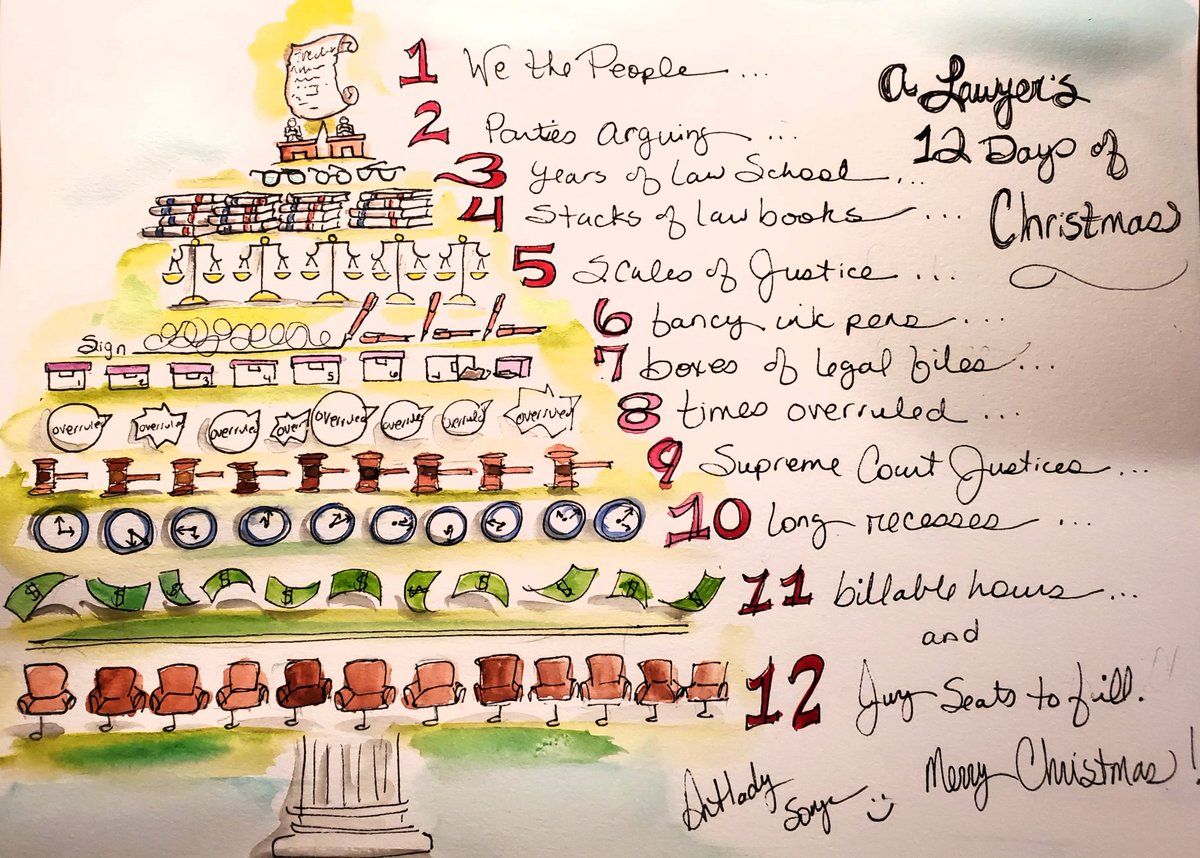 A Lawyer's
12 Days of
Christmas
1 We the People ...
2 Parties arguing ...
3 years of Law School ...
4 Stacks of law books ...
5 Scales of Justice ...
6 fancy ink pens ...
Sign
7 boxes of legal files ...
1 2 3 4 5 6
8 times overruled ...
overruled overruled overruled overruled overruled overruled overruled overruled
9 Supreme Court Justices ...
10 long recesses ...
11 billable hours ...
$ $ $ $ $ $ $ $ $ $ $
and
12 Jury Seats to fill.
Merry Christmas!
ArtLady
Sonya